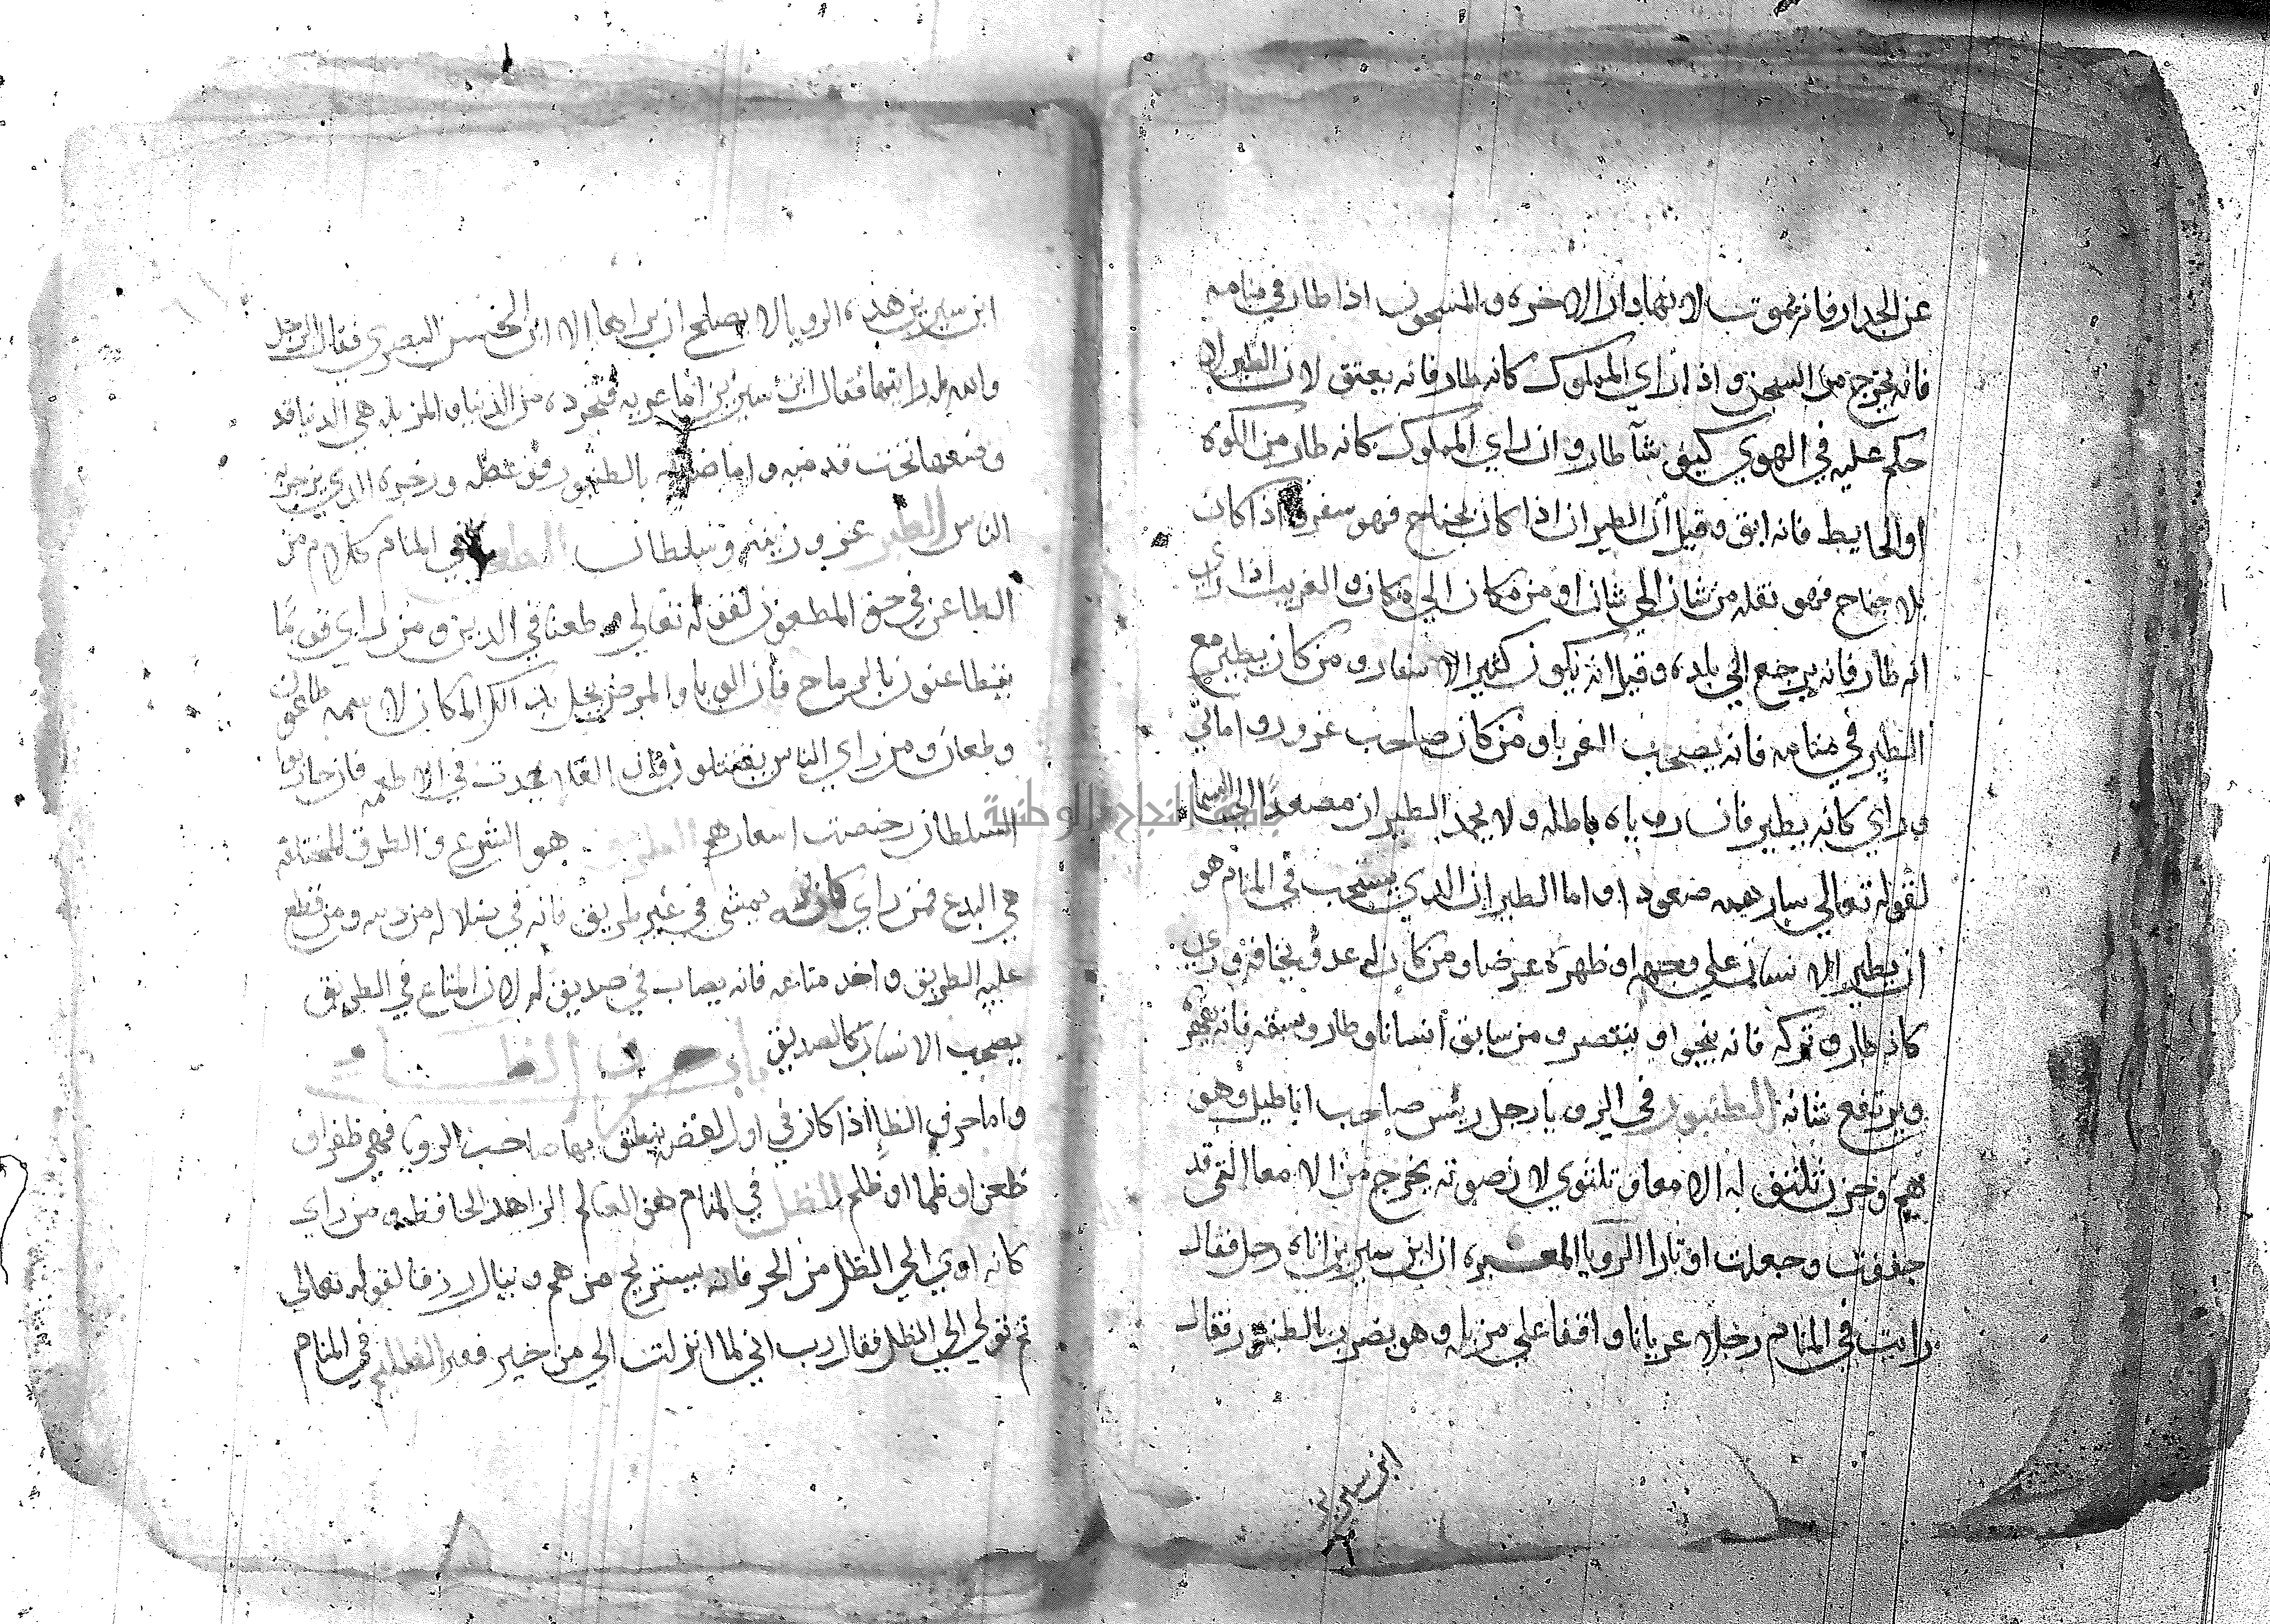 عن الجدار فانه يموت لانها دار الاخره والمسجون اذا طار في منامه
فانه يخرج من السجن واذا راي المملوك كانه طار فانه يعتق لان الطير لا
حكم عليه في الهوي كيف شآ طار وان راي المملوك كانه طار من الكوه
او الحايط فانه ابق وقيل ان الطيران اذا كان بجناح فهو سفر واذا كان
بلا جناح فهو نقله من شان الي شان او من مكان الي مكان والغريب اذا راي
انه طار فانه يرجع الي بلده وقيل انه يكون كثير الاسفار ومن كان يطير مع
الطير في منامه فانه يصحب الغربا ومن كان صاحب غرور واماني
وراي كانه يطير فان روياه باطله ولا يحمد الطيران مصعدا الي السما
لقوله تعالي سارهقه صعودا واما الطيران الدي يستحب في المنام هو
ان يطير الانسان علي وجهه او ظهره عرضا ومن كان له عدو يخافه وراي
كانه طار وتركه فانه ينجوا وينتصر ومن سابق انسانا وطار وسبقه فانه يقهره
ويرتفع شانه الطنبور في الرويا رجل ريس صاحب اباطيل وهو
هم وحزن تلتف له الامعا وتلتوي لان صوته يخرج من الامعا التي قد
جففت وجعلت اوتارا الرويا المعبره ان ابن سيرين اتاه رجل فقال
رايت في المنام رجلا عريانا واقفا علي مزبله وهو يضرب بالطنبور فقال
ابن سيرين
ابن سيرين هذه الرويا لا يصلح ان يراها الا ابن الحسن البصري فقال الرجل
والله له رايتها فقال ابن سيرين اما عريه فتجرده من الدنيا والمزبله هي الدنيا قد
وضعها تحت قدميه واما ضربه بالطنبور فوعظه وزجره الدي يزجر به
الناس الطير عز وزينه وسلطان الطعن في المنام كلام من
الطاعن في حق المطعون لقوله تعالي وطعنا في الدين ومن راي قوما
يتطاعنون بالرماح فان الوبا والمرض يحل بدلك المكان لان اسمه طاعون
وطعان ومن راي الناس يقتتلون فان الغلا يحدث في الاطعمه فان حاربوا
السلطان رخصت اسعارهم الطريق هو الشرع والطرق المختلفه
هي البدع فمن راي كانه يمشي في غير طريق فانه في ضلاله من دينه ومن قطع
عليه الطريق واخد متاعه فانه يصاب في صديق له لان المتاع في الطريق
يصحب الانسان كالصديق باب حرف الظاء
واما حرف الظا اذا كان في اول لفضه ينطق بها صاحب الرويا فهي ظفر او
ظعن او ظما او ظلم الظل في المنام هو العالم الزاهد الحافظ ومن راي
كانه اوي الي الظل من الحر فانه يستريح من هم وينال رزقا لقوله تعالي
ثم تولي الي الظل فقال رب اني لما انزلت الي من خير فقير الظلم في المنام
جامعة النجاح الوطنية